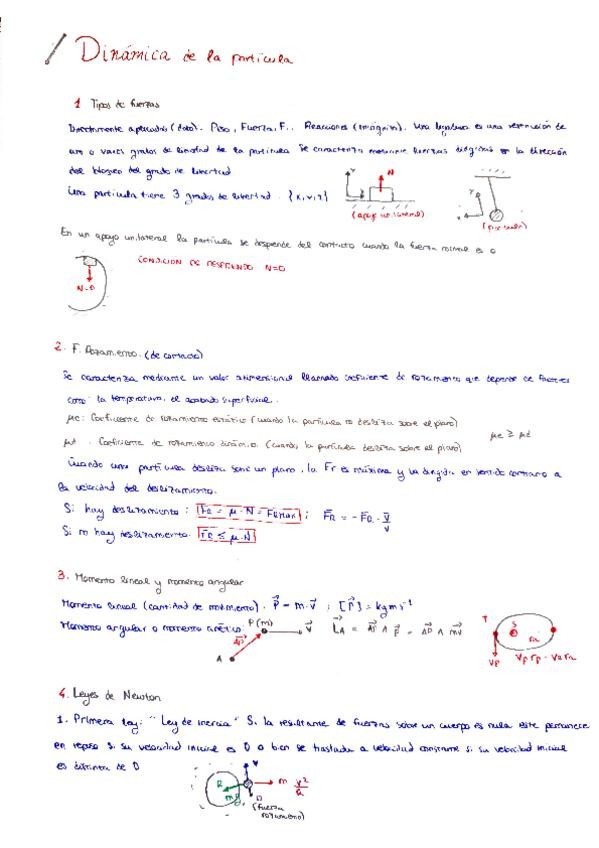 Dinámica de la partícula
1 Tipos de fuerzas
Directamente aplicadas (dato). Peso, Fuerza, F.. Reacciones (incógnita). Una ligadura es una restricción de
uno o varios grados de libertad de la partícula Se caracteriza mediante fuerzas dirigidas en la dirección
del bloqueo del grado de libertad
Una partícula tiene 3 grados de libertad. {x, y, z}
Y
N
(apoyo unilateral)
Y
x
En un apoyo unilateral la partícula se desprende del contacto cuando la fuerza normal es 0
CONDICION DE DESPEGUE N=0
N=0
2. F. Rozamiento. (de contacto)
Se caracteriza mediante un valor adimensional llamado coeficiente de rozamiento que depende de factores
como la temperatura, el acabado superficial..
μe: Coeficiente de rozamiento estático (cuando la partícula no desliza sobre el plano)
μd : Coeficiente de rozamiento dinámico. (cuando la partícula desliza sobre el plano)
μe ≥ μd
Cuando una partícula desliza sobre un plano, la Fr es máxima y va dirigida en sentido contrario a
la velocidad del deslizamiento.
Si hay deslizamiento : FR = μ · N = FRMAX ; F̄R = - FR · v̄/v
Si no hay deslizamiento. FR ≤ μ · N
3. Momento lineal y momento angular
Momento lineal (cantidad de movimiento). P⃗ = m · v⃗ ; [P⃗] = kg m s⁻¹
Momento angular o momento cinético. L⃗A = AP ∧ p⃗ = AP ∧ mv
P(m)
v⃗
AP
A
T
S
ra
vp
vp rp = va ra
4. Leyes de Newton
1. Primera ley: "Ley de inercia" Si la resultante de fuerzas sobre un cuerpo es nula este permanece
en reposo si su velocidad inicial es 0 o bien se traslada a velocidad constante si su velocidad inicial
es distinta de 0
R
mg
m v²/R
(fuerza
rozamiento)